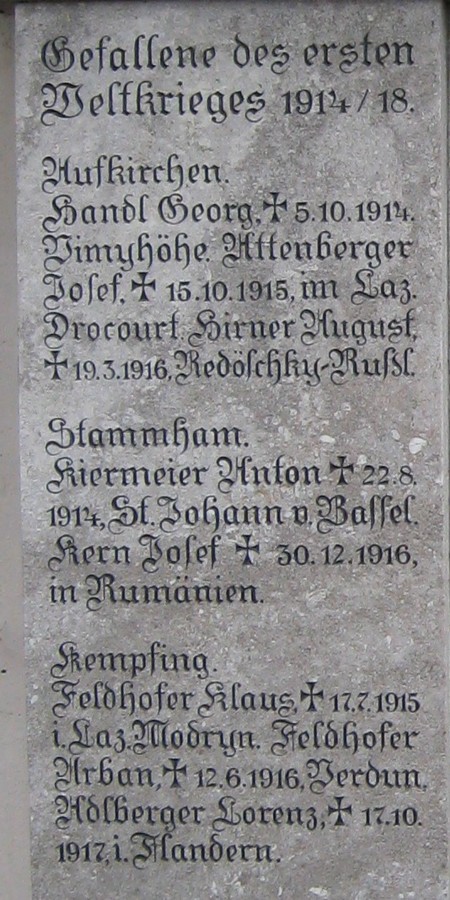 Gefallene des ersten
Weltkrieges 1914/18.
Aufkirchen.
Handl Georg, ✝ 5.10.1914.
Vimyhöhe. Attenberger
Josef, ✝ 15.10.1915, im Laz.
Drocourt. Hirner August,
✝ 19.3.1916, Redöschky-Rußl.
Stammham.
Kiermeier Anton ✝ 22.8.
1914, St. Johann v. Bassel.
Kern Josef ✝ 30.12.1916,
in Rumänien.
Kempfing.
Feldhofer Klaus, ✝ 17.7.1915
i. Laz. Modryn. Feldhofer
Arban, ✝ 12.6.1916, Verdun.
Adlberger Lorenz, ✝ 17.10.
1917, i. Flandern.